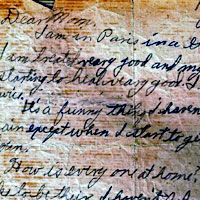 Dear Mom,
I am in Paris in a
I am treated very good and my
starting to heal very good. I
twice.
It's a funny thing I haven't
except when I start to get
How is every one at home?
haven't